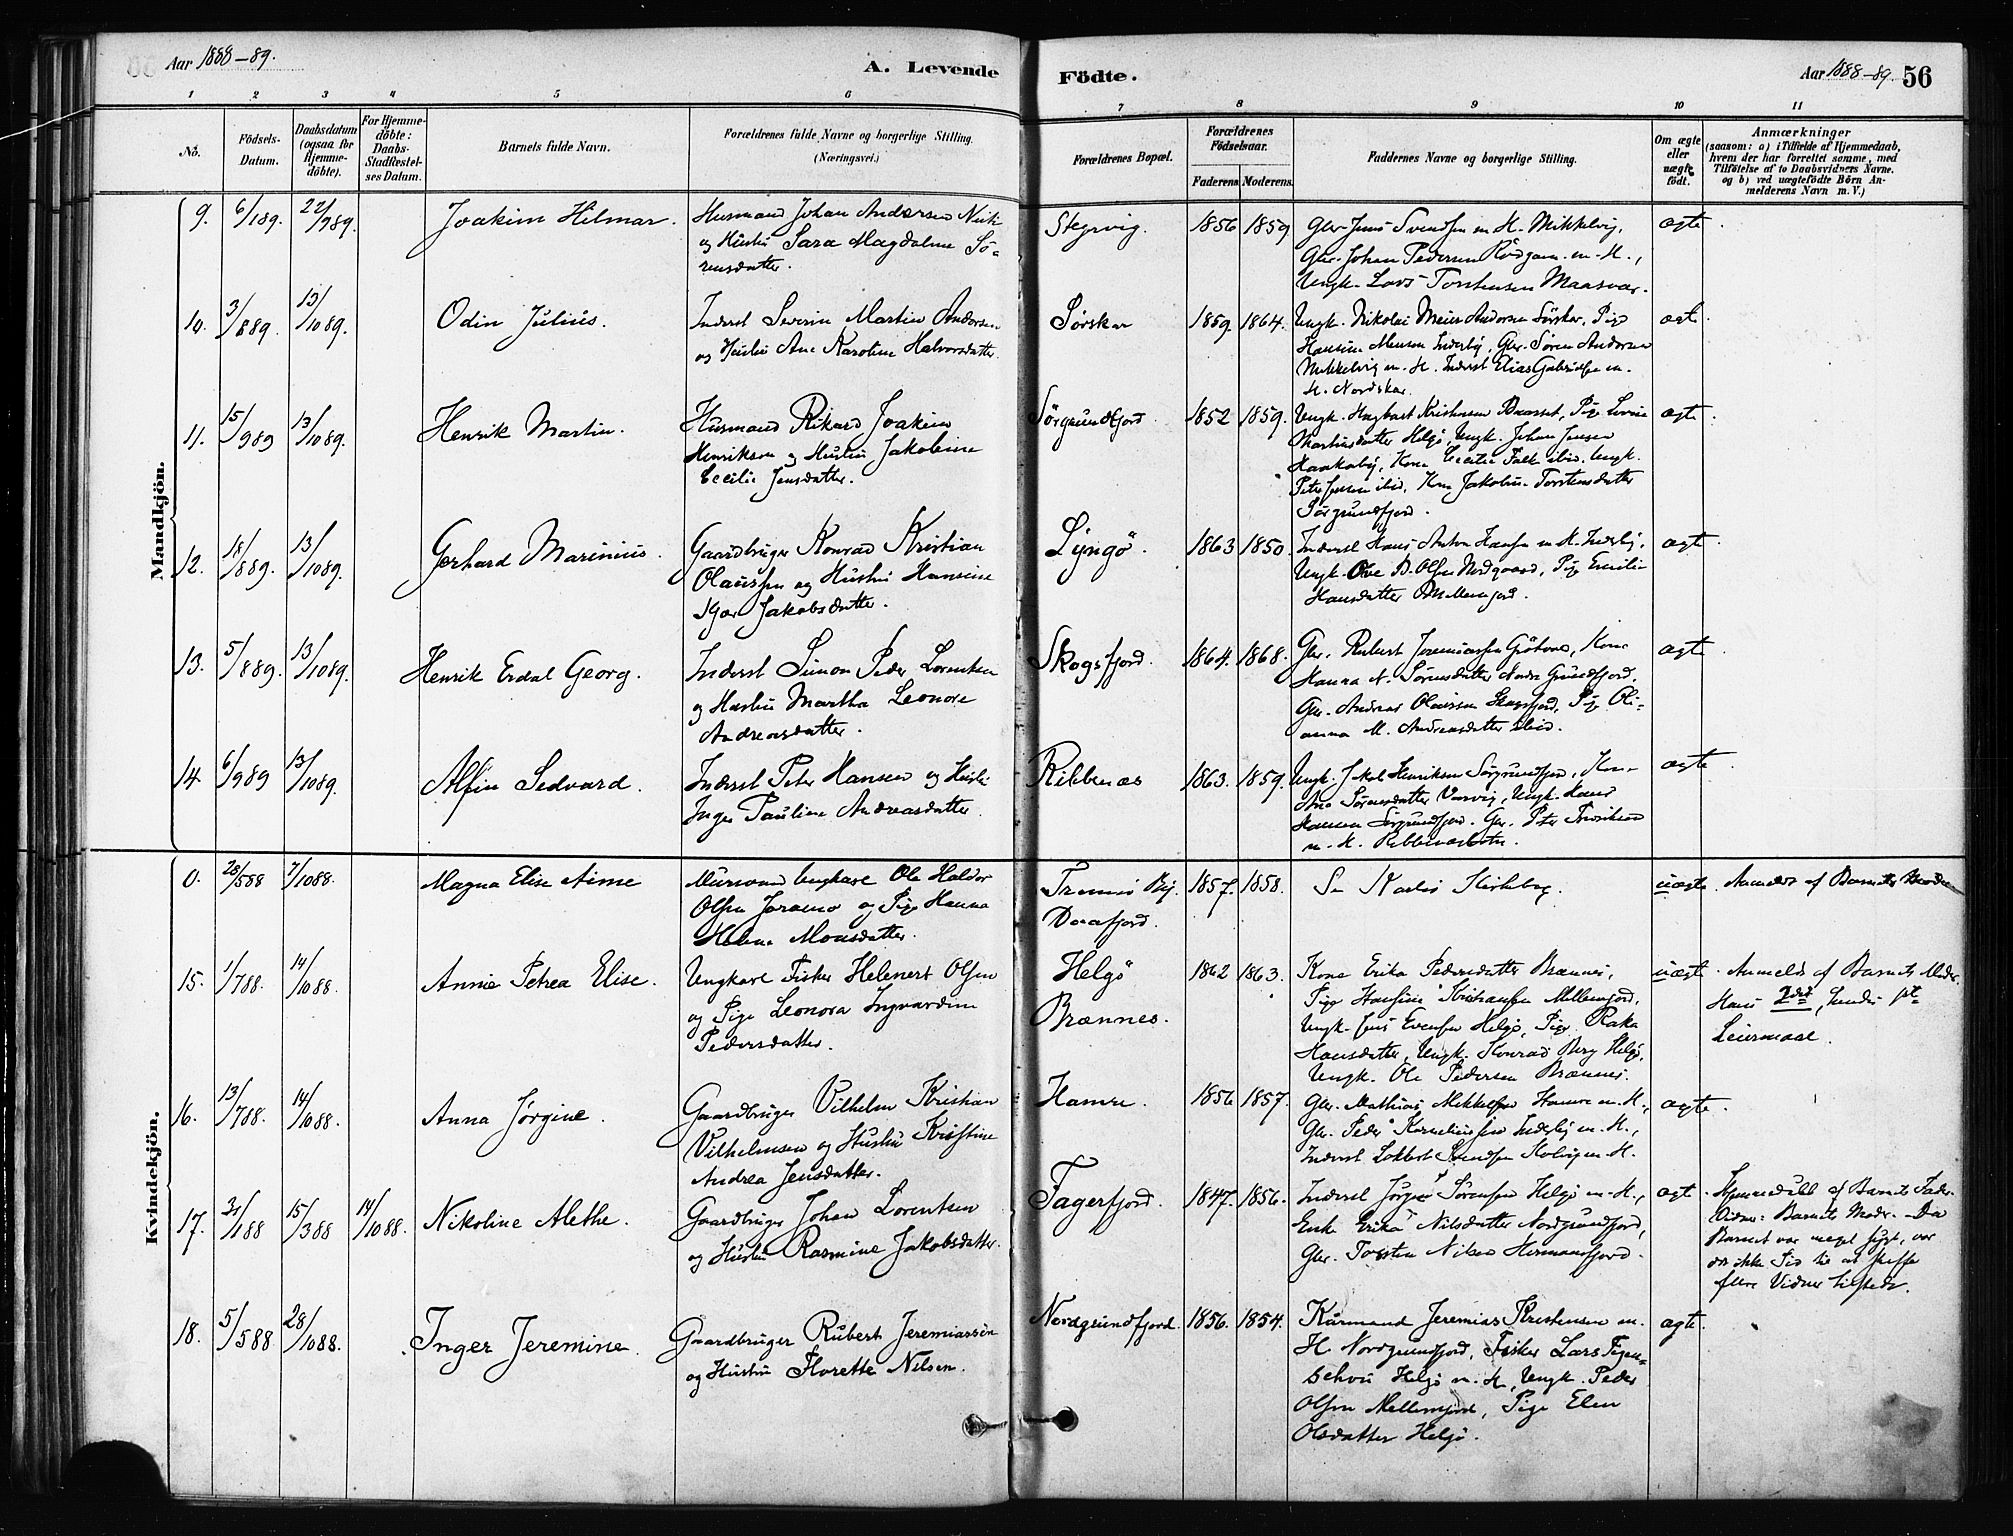 Aar 1888-89.
A. Levende
Födte.
Aar 1888-89. 56
1 2 3 4 5 6 7 8 9 10 11
Nô.
Födsels-
Datum.
Daabsdatum
(ogsaa for
Hjemme-
döbte).
For Hjemme-
döbte:
Daabs-
Stadfæstel-
ses Datum.
Barnets fulde Navn.
Forældrenes fulde Navne og borgerlige Stilling.
(Næringsvei.)
Forældrenes Bopæl.
Forældrenes
Födselsaar.
Faderens. Moderens.
Faddernes Navne og borgerlige Stilling.
Om ægte
eller
uægte
födt.
Anmærkninger
(saasom: a) i Tilfælde af Hjemmedaab,
hvem der har forrettet samme, med
Tilföielse af to Daabsvidners Navne.
og b) ved uægtefödte Börn An-
melderens Navn m. V.)
Mandkjön.
9. 6/189. 22/989. Joakim Hilmar. Husmand Johan Andersen
og Hustru Sara Magdalene Sö-
rensdatter.
1856 1859 Gbr. Jens Svendsen m. H. Mikkelvig,
Gbr. Johan Pedersen m. H.,
Ungk. Lars Torstensen Maasvær.
ægte.
10. 3/889. 13/1089. Odin Julius. Inderst Severin Martin Andersen
og Hustru Ane Karoline Halvorsdatter
Sörskar 1859. 1864. Ungk. Nikolai Meier Andersen Sörskar, Pige
Hansine Monsen Inderby, Gbr. Sören Andersen
Mikkelvig m. H. Inderst Elias Gabrielsen m.
H. Nordskar.
ægte
11. 15/989 13/1089. Henrik Martin. Husmand Rikard Joakim
Henriksen og Hustru Jakobine
Cecilie Jensdatter.
Sörgrundfjord. 1852 1859. Ungk. Hagbart Kristensen
Helgö, Ungk. Johan Jensen
Kone Cecilie Falk ibid. Ungk.
Peter Jensen ibid, Kone Jakobine Torstensdatter
Sörgrundfjord.
ægte.
12. 18/889. 13/1089. Gerhard Marinius. Gaardbruger Konrad Kristian
Olaussen og Hustru Hansine
Jakobsdatter.
Lyngö. 1863 1850. Inderst Hans Anton Hansen m. H. Inderby,
Ungk. Ole B. Olsen Nordgaard, Pige Emilie
Hansdatter Mellemjord.
ægte.
13. 5/889. 13/1089. Henrik Erdal Georg. Inderst Simon Peder Lorentsen
og Hustru Martha Leonore
Andreasdatter.
Skogsfjord. 1864. 1868. Gbr. Rubert Jeremiassen Kone
Hanna N. Sörensdatter Nordre Grundfjord.
Gbr. Andreas Olaussen Skogsfjord, Pige Oli-
anna M. Andreasdatter ibid.
ægte
14. 6/989 13/1089. Alfin Sedvard. Inderst Peter Hansen og Hustru
Inger Pauline Andreasdatter.
Ribbenæs 1863. 1859. Ungk. Jakob Henriksen Sörgrundfjord, Kone
Ane Sörensdatter Ungk. Hans
Hansen Sörgrundfjord. Gbr. Peter
m. H.
ægte
Kvindekjön.
0. 28/588 7/1088. Magna Elise Aime Murmand Ungkarl Ole Haldor
Olsen og Pige Hanna
Helene Monsdatter.
Tromsö By.
1857. 1858. Se Karlsö Kirkebog.
uægte. Anmeldt af Barnets Moder
15. 1/788. 14/1088. Annie Petrea Elise. Ungkarl Fisker Helenert Olsen
og Pige Leonora Ingvardine
Pedersdatter.
Helgö
Brænnes.
1862 1863. Kone Erika Pedersdatter Brænnes,
Pige Hansine Kristiansen Mellemjord,
Ungk. Jens Evensen Helgö, Pige Raka
Hansdatter, Ungk. Konrad Berg Helgö,
Ungk. Ole Pedersen Brænnes.
uægte. Anmeldt af Barnets Moder.
Hans 2det, hendes 1ste
Leiermaal.
16. 13/788. 14/1088. Anna Jörgine. Gaardbruger Vilhelm Kristian
Vilhelmsen og Hustru Kristine
Andrea Jensdatter.
Hamre. 1856 1857. Gbr. Mathias Mikkelsen Hamre m. H.,
Gbr. Peder Korneliussen Inderby m. H.,
Inderst Lokkert Svendsen m. H.
ægte.
17. 31/188 15/388 14/1088. Nikoline Alethe. Gaardbruger Johan Lorentsen
og Hustru Rasmine Jakobsdatter.
Fagerfjord. 1847. 1856. Inderst Jörgen Sörensen Helgö m. H.,
Enke Erika Nilsdatter Nordgrundfjord,
Gbr. Torsten Nilsen Hermandfjord.
ægte. Hjemmedöbt af Barnets Fader.
Vidne: Barnets Moder. Da
Barnet var meget sygt, var
der ikke Tid til at skaffe
flere Vidner tilstede.
18. 5/588 28/1088. Inger Jeremine. Gaardbruger Rubert Jeremiassen
og Hustru Florette Nilsen.
Nordgrundfjord. 1856. 1854. Kaarmand Jeremias Kristensen m.
H. Nordgrundfjord, Fisker Lars Figen-
schou Helgö m. H, Ungk. Peder
Olsen Mellemjord, Pige Elen
Olsdatter Helgö.
ægte.